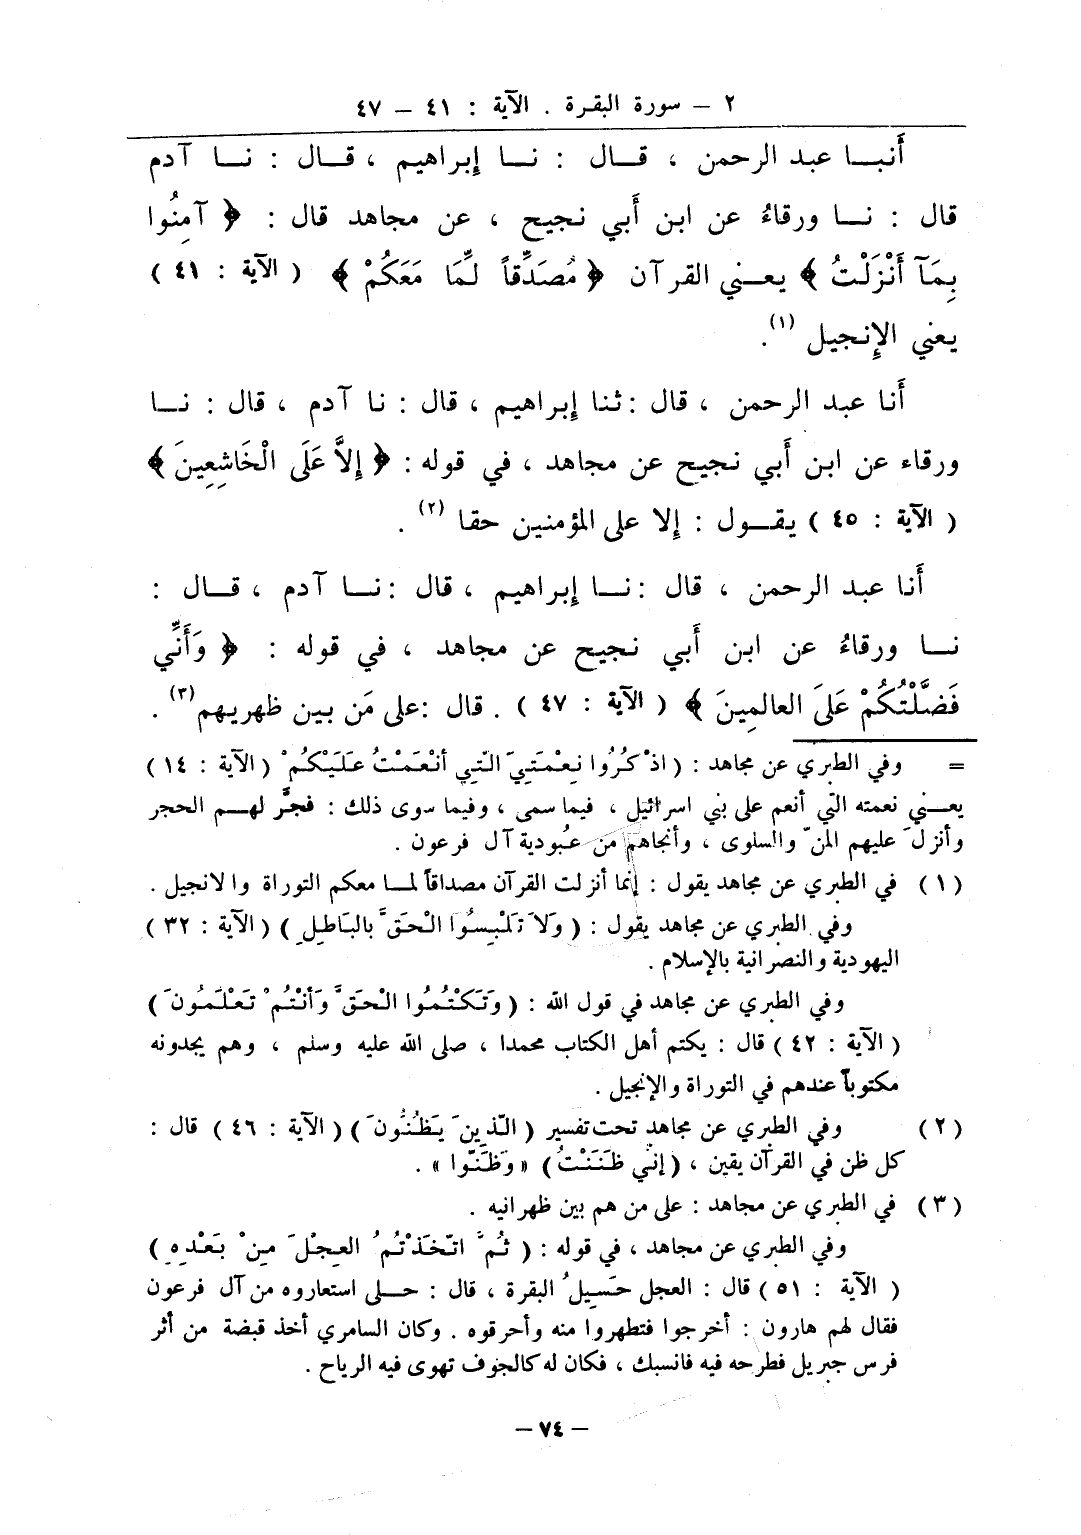 ٢ – سورة البقرة . الآية : ٤١ – ٤٧
أَنبـا عبد الرحمن ، قـال : نـا إِبراهيم ، قـال : نـا آدم
قال : نـا ورقاءُ عن ابن أَبي نجيح ، عن مجاهد قال : ﴿ آمِنُوا
بِمَآ أَنْزَلْتُ ﴾ يعـني القرآن ﴿ مُصَدِّقاً لِّمَا مَعَكُمْ ﴾ ( الآية : ٤١ )
يعني الإِنجيل (١).
أَنا عبد الرحمن ، قال : ثنا إِبراهيم ، قال : نا آدم ، قال : نـا
ورقاء عن ابن أَبي نجيح عن مجاهد ، في قوله : ﴿ إِلاَّ عَلَى الْخَاشِعِينَ ﴾
( الآية : ٤٥ ) يقـول : إِلا على المؤمنين حقا (٢) .
أَنا عبد الرحمن ، قال : نـا إِبراهيم ، قال : نـا آدم ، قـال :
نـا ورقاءُ عن ابن أَبي نجيح عن مجاهد ، في قوله : ﴿ وَأَنِّي
فَضَّلْتُكُمْ عَلَى العالمِينَ ﴾ ( الآية : ٤٧ ) . قال : على مَن بين ظهريهم (٣) .
= وفي الطبري عن مجاهد : ( اذْكُرُوا نِعْمَتِيَ الَّتِي أنْعَمْتُ عَلَيْكُمْ ( الآية : ١٤ )
يعـني نعمته التي أنعم على بني اسرائيل ، فيما سمى ، وفيما سوى ذلك : فجَّر لهـم الحجر
وأنزلَ عليهم المنّ والسلوى ، وأنجاهم من عبُودية آل فرعون .
( ١ ) في الطبري عن مجاهد يقول : إنما أنزلت القرآن مصداقاً لمـا معكم التوراة والانجيل .
وفي الطبري عن مجاهد يقول : ( وَلاَ تَلْبِسُوا الْحَقَّ بالبَاطِلِ ) ( الآية : ٣٢ )
اليهودية والنصرانية بالإسلام .
وفي الطبري عن مجاهد في قول الله : ( وَتَكْتُمُوا الْحَقَّ وَأنْتُمْ تَعْلَمُونَ )
( الآية : ٤٢ ) قال : يكتم أهل الكتاب محمدا ، صلى الله عليه وسلم ، وهم يجدونه
مكتوباً عندهم في التوراة والإنجيل .
( ٢ ) وفي الطبري عن مجاهد تحت تفسير ( الَّذِينَ يَظُنُّونَ ) ( الآية : ٤٦ ) قال :
كل ظن في القرآن يقين ، ( إنِّي ظَنَنْتُ ) « وَظَنّوا » .
( ٣ ) في الطبري عن مجاهد : على من هم بين ظهرانيه .
وفي الطبري عن مجاهد ، في قوله : ( ثُمَّ اتَّخَذْتُمُ العِجْلَ مِنْ بَعْدِهِ )
( الآية : ٥١ ) قال : العجل حَسِيلُ البقرة ، قال : حـلى استعاروه من آل فرعون
فقال لهم هارون : أخرجوا فتطهروا منه وأحرقوه . وكان السامري أخذ قبضة من أثر
فرس جبريل فطرحه فيه فانسبك ، فكان له كالجوف تهوى فيه الرياح .
– ٧٤ –